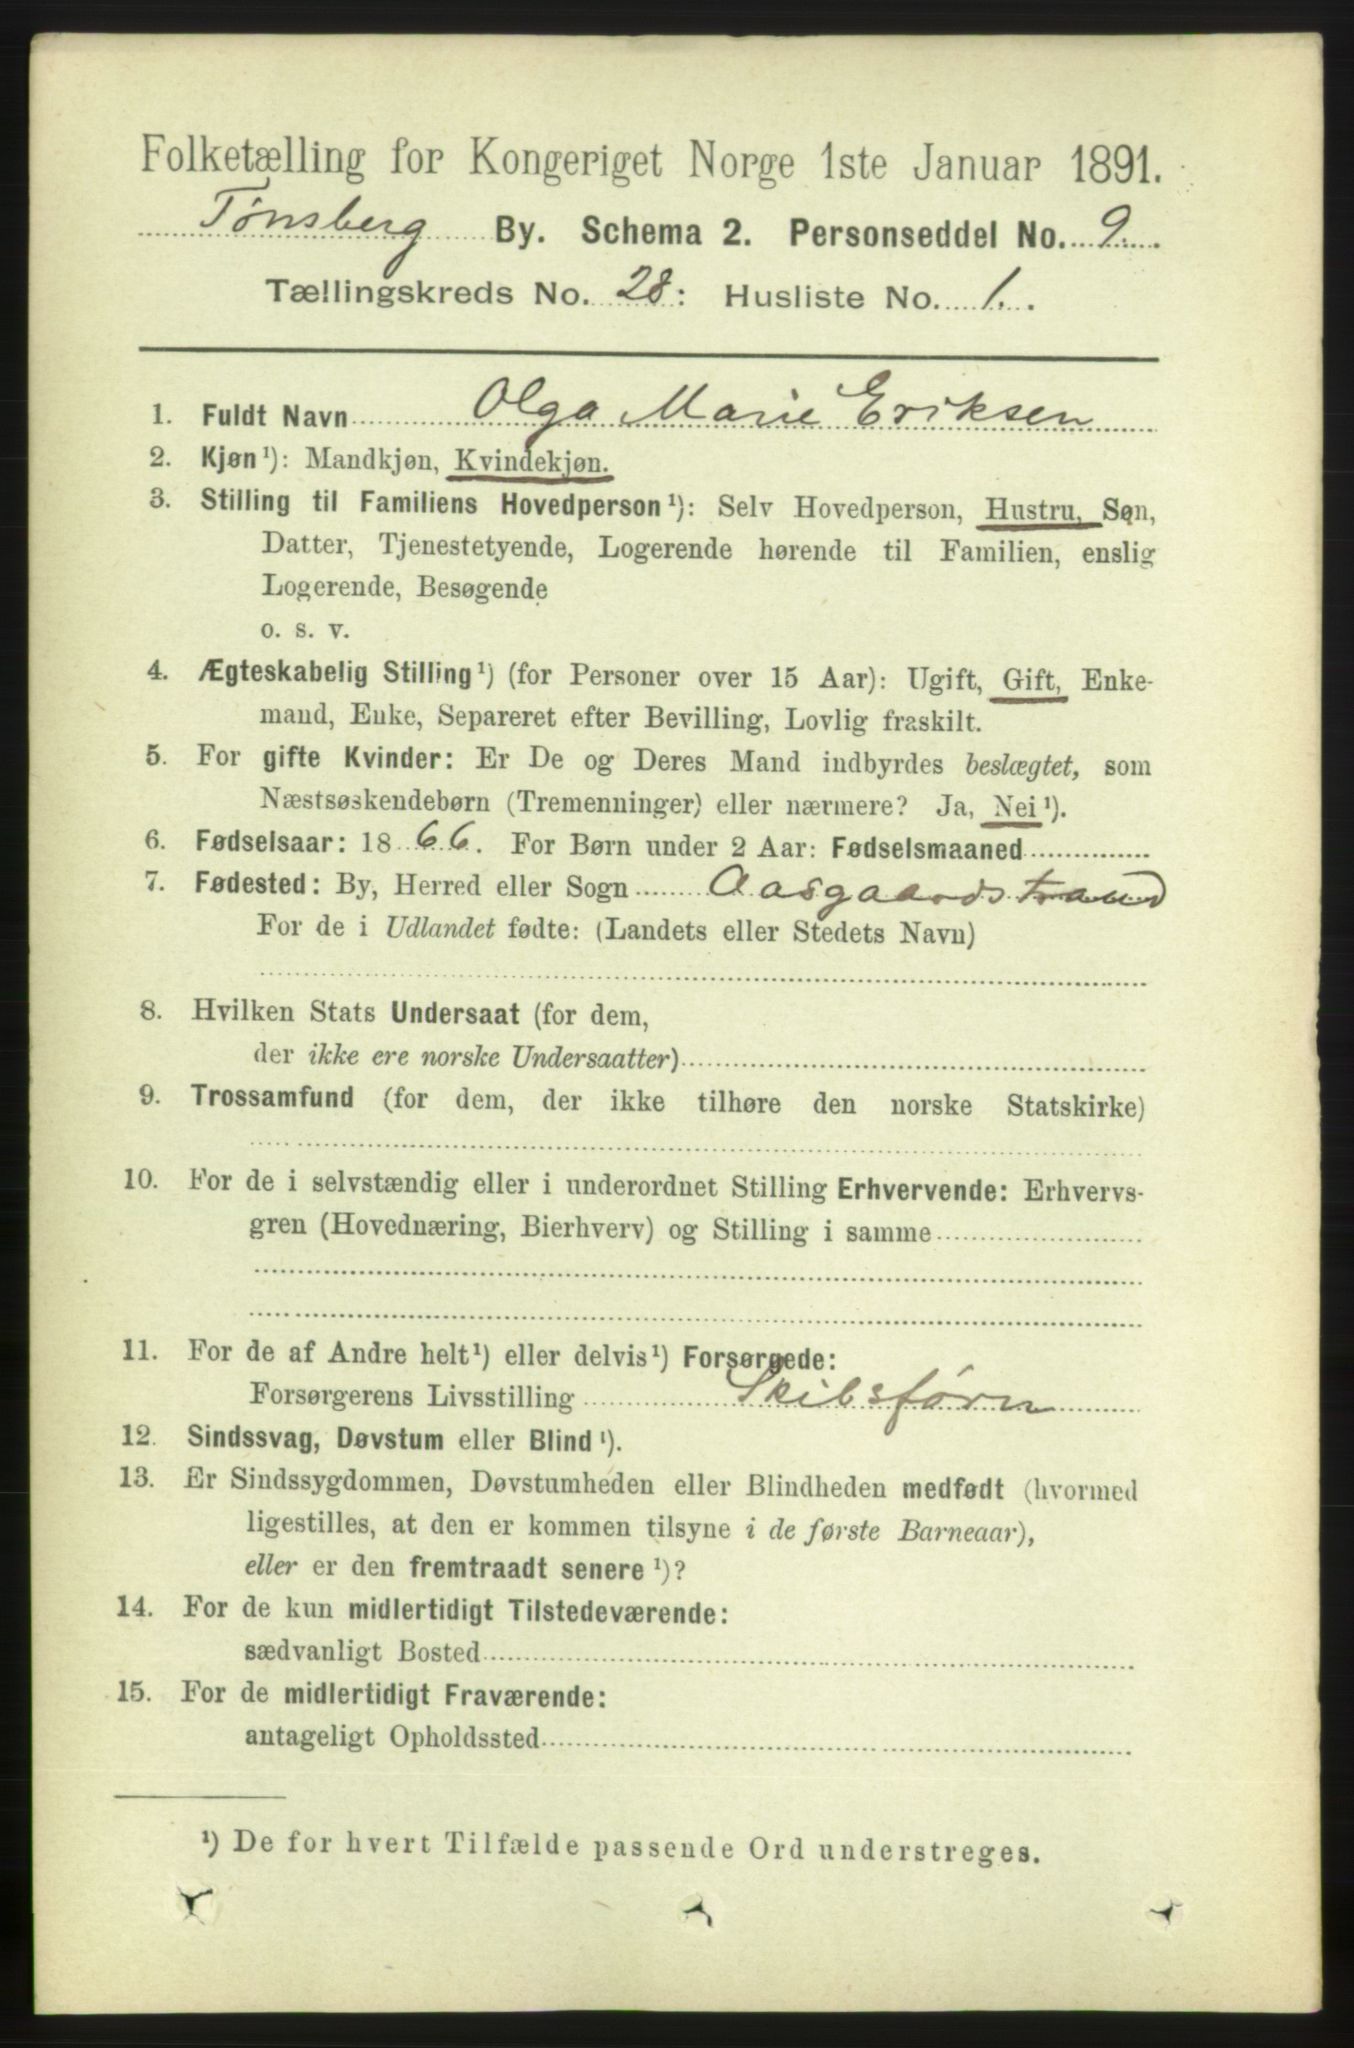 Folketælling for Kongeriget Norge 1ste Januar 1891.
Tønsberg By. Schema 2. Personseddel No. 9.
Tællingskreds No. 28: Husliste No. 1.
1. Fuldt Navn Olga Marie Eriksen
2. Kjøn¹): Mandkjøn, Kvindekjøn.
3. Stilling til Familiens Hovedperson¹): Selv Hovedperson, Hustru, Søn,
Datter, Tjenestetyende, Logerende hørende til Familien, enslig
Logerende, Besøgende
o. s. v.
4. Ægteskabelig Stilling¹) (for Personer over 15 Aar): Ugift, Gift, Enke-
mand, Enke, Separeret efter Bevilling, Lovlig fraskilt.
5. For gifte Kvinder: Er De og Deres Mand indbyrdes beslægtet, som
Næstsøskendebørn (Tremenninger) eller nærmere? Ja, Nei¹).
6. Fødselsaar: 1866. For Børn under 2 Aar: Fødselsmaaned
7. Fødested: By, Herred eller Sogn Aasgaardstrand
For de i Udlandet fødte: (Landets eller Stedets Navn)
8. Hvilken Stats Undersaat (for dem,
der ikke ere norske Undersaatter)
9. Trossamfund (for dem, der ikke tilhøre den norske Statskirke)
10. For de i selvstændig eller i underordnet Stilling Erhvervende: Erhvervs-
gren (Hovednæring, Bierhverv) og Stilling i samme
11. For de af Andre helt¹) eller delvis¹) Forsørgede:
Forsørgerens Livsstilling Skibsførn
12. Sindssvag, Døvstum eller Blind¹).
13. Er Sindssygdommen, Døvstumheden eller Blindheden medfødt (hvormed
ligestilles, at den er kommen tilsyne i de første Barneaar),
eller er den fremtraadt senere¹)?
14. For de kun midlertidigt Tilstedeværende:
sædvanligt Bosted
15. For de midlertidigt Fraværende:
antageligt Opholdssted
¹) De for hvert Tilfælde passende Ord understreges.